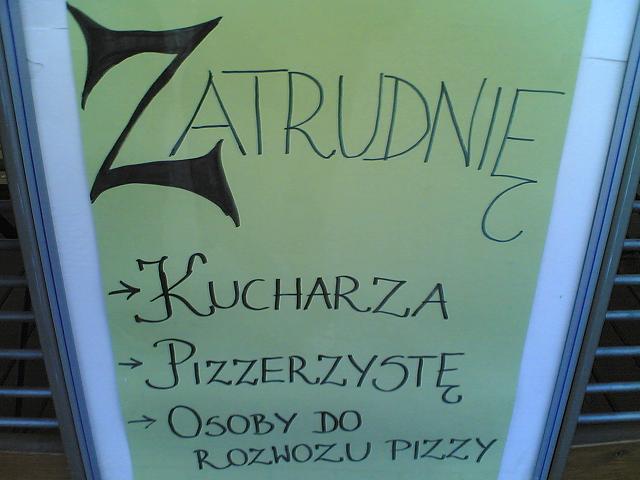 ZATRUDNIĘ
→ KUCHARZA
→ PIZZERZYSTĘ
→ OSOBY DO
ROZWOZU PIZZY